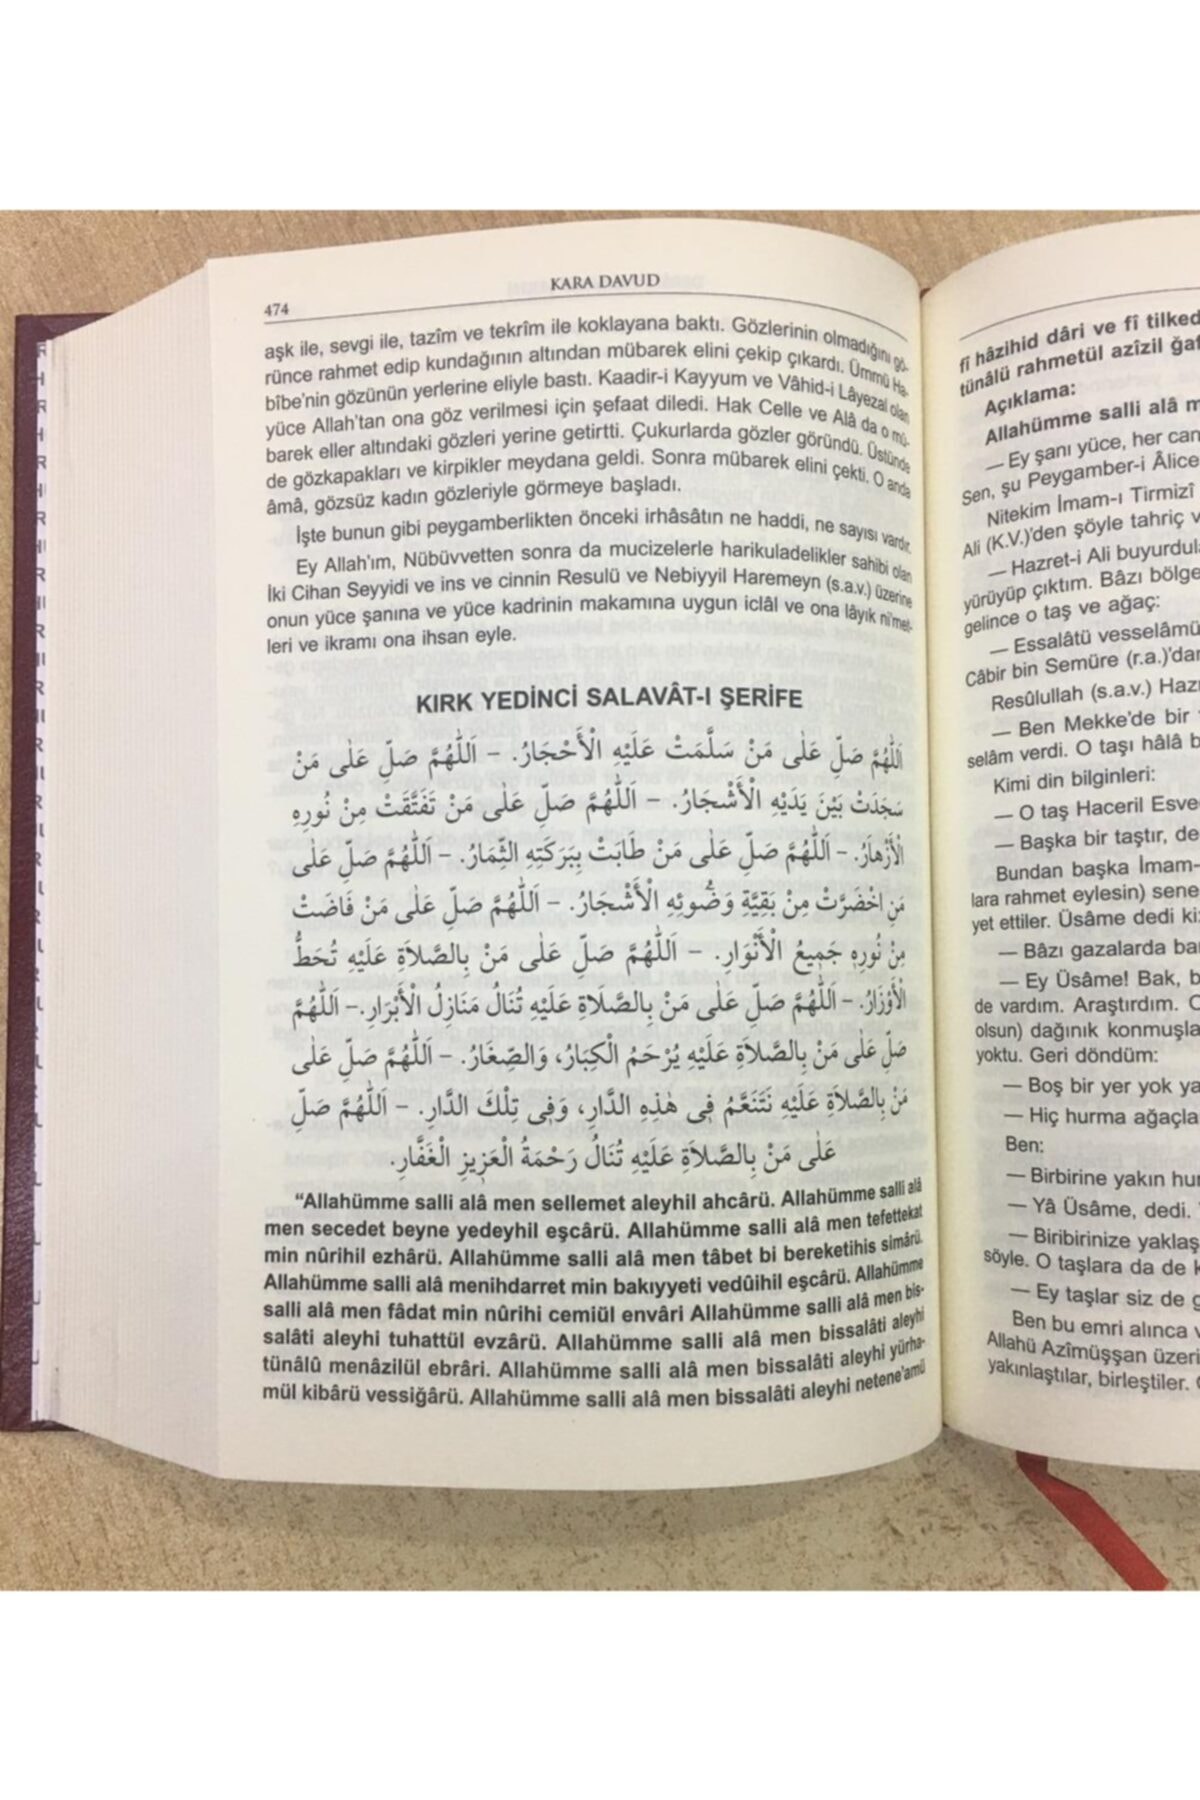 KARA DAVUD
474
aşk ile, sevgi ile, tazîm ve tekrîm ile koklayana baktı. Gözlerinin olmadığını gö-
rünce rahmet edip kundağının altından mübarek elini çekip çıkardı. Ümmü Ha-
bîbe'nin gözünün yerlerine eliyle bastı. Kaadir-i Kayyum ve Vâhid-i Lâyezal olan
yüce Allah'tan ona göz verilmesi için şefaat diledi. Hak Celle ve Alâ da o mü-
barek eller altındaki gözleri yerine getirtti. Çukurlarda gözler göründü. Üstünde
de gözkapakları ve kirpikler meydana geldi. Sonra mübarek elini çekti. O anda
âmâ, gözsüz kadın gözleriyle görmeye başladı.
İşte bunun gibi peygamberlikten önceki irhâsâtın ne haddi, ne sayısı vardır.
Ey Allah'ım, Nübüvvetten sonra da mucizelerle harikuladelikler sahibi olan
İki Cihan Seyyidi ve ins ve cinnin Resulü ve Nebiyyil Haremeyn (s.a.v.) üzerine
onun yüce şanına ve yüce kadrinin makamına uygun iclâl ve ona lâyık ni'met-
leri ve ikramı ona ihsan eyle.
KIRK YEDİNCİ SALAVÂT-I ŞERİFE
اَللّٰهُمَّ صَلِّ عَلٰى مَنْ سَلَّمَتْ عَلَيْهِ الْأَحْجَارُ. – اَللّٰهُمَّ صَلِّ عَلٰى مَنْ
سَجَدَتْ بَيْنَ يَدَيْهِ الْأَشْجَارُ. – اَللّٰهُمَّ صَلِّ عَلٰى مَنْ تَفَتَّقَتْ مِنْ نُورِهِ
الْأَزْهاَرُ. – اَللّٰهُمَّ صَلِّ عَلٰى مَنْ طَابَتْ بِبَرَكَتِهِ الثِّمَارُ. – اَللّٰهُمَّ صَلِّ عَلٰى
مَنِ اخْضَرَّتْ مِنْ بَقِيَّةِ وَضُوئِهِ الْأَشْجَارُ. – اَللّٰهُمَّ صَلِّ عَلٰى مَنْ فَاضَتْ
مِنْ نُورِهِ جَمِيعُ الْأَنْوَارِ. – اَللّٰهُمَّ صَلِّ عَلٰى مَنْ بِالصَّلاَةِ عَلَيْهِ تُحَطُّ
الْأَوْزَارُ. – اَللّٰهُمَّ صَلِّ عَلٰى مَنْ بِالصَّلاَةِ عَلَيْهِ تُنَالُ مَنَازِلُ الْأَبْرَارِ. – اَللّٰهُمَّ
صَلِّ عَلٰى مَنْ بِالصَّلاَةِ عَلَيْهِ يُرْحَمُ الْكِبَارُ، وَالصِّغَارُ. – اَللّٰهُمَّ صَلِّ عَلٰى
مَنْ بِالصَّلاَةِ عَلَيْهِ نَتَنَعَّمُ فِى هٰذِهِ الدَّارِ، وَفِى تِلْكَ الدَّارِ. – اَللّٰهُمَّ صَلِّ
عَلٰى مَنْ بِالصَّلاَةِ عَلَيْهِ تُنَالُ رَحْمَةُ الْعَزِيزِ الْغَفَّارِ.
“Allahümme salli alâ men sellemet aleyhil ahcârü. Allahümme salli alâ
men secedet beyne yedeyhil eşcârü. Allahümme salli alâ men tefettekat
min nûrihil ezhârü. Allahümme salli alâ men tâbet bi bereketihis simârü.
Allahümme salli alâ menihdarret min bakıyyeti vedûihil eşcârü. Allahümme
salli alâ men fâdat min nûrihi cemiül envâri Allahümme salli alâ men bis-
salâti aleyhi tuhattül evzârü. Allahümme salli alâ men bissalâti aleyhi
tünâlû menâzilül ebrâri. Allahümme salli alâ men bissalâti aleyhi yürha-
mül kibârü vessiğârü. Allahümme salli alâ men bissalâti aleyhi netene'amü
fî hâzihid dâri ve fî tilked
tünâlü rahmetül azîzil ğaf
Açıklama:
Allahümme salli alâ m
— Ey şanı yüce, her can
Sen, şu Peygamber-i Âlice
Nitekim İmam-ı Tirmizî
Ali (K.V.)'den şöyle tahriç v
— Hazret-i Ali buyurdula
yürüyüp çıktım. Bâzı bölge
gelince o taş ve ağaç:
— Essalâtü vesselâmü
Câbir bin Semüre (r.a.)'dan
Resûlullah (s.a.v.) Hazr
— Ben Mekke'de bir
selâm verdi. O taşı hâlâ b
Kimi din bilginleri:
— O taş Haceril Esved
— Başka bir taştır, de
Bundan başka İmam-
lara rahmet eylesin) sene
yet ettiler. Üsâme dedi ki
— Bâzı gazalarda ba
— Ey Üsâme! Bak, b
de vardım. Araştırdım. O
olsun) dağınık konmuşla
yoktu. Geri döndüm:
— Boş bir yer yok ya
— Hiç hurma ağaçla
Ben:
— Birbirine yakın hur
— Yâ Üsâme, dedi.
— Biribirinize yaklaş
söyle. O taşlara da de k
— Ey taşlar siz de g
Ben bu emri alınca v
Allahü Azîmüşşan üzeri
yakınlaştılar, birleştiler.